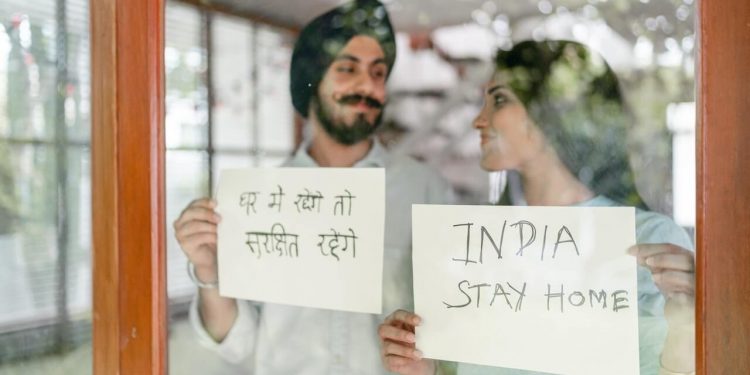 घर मे रहेगे तो
सुरक्षित रहेगे
INDIA
STAY HOME